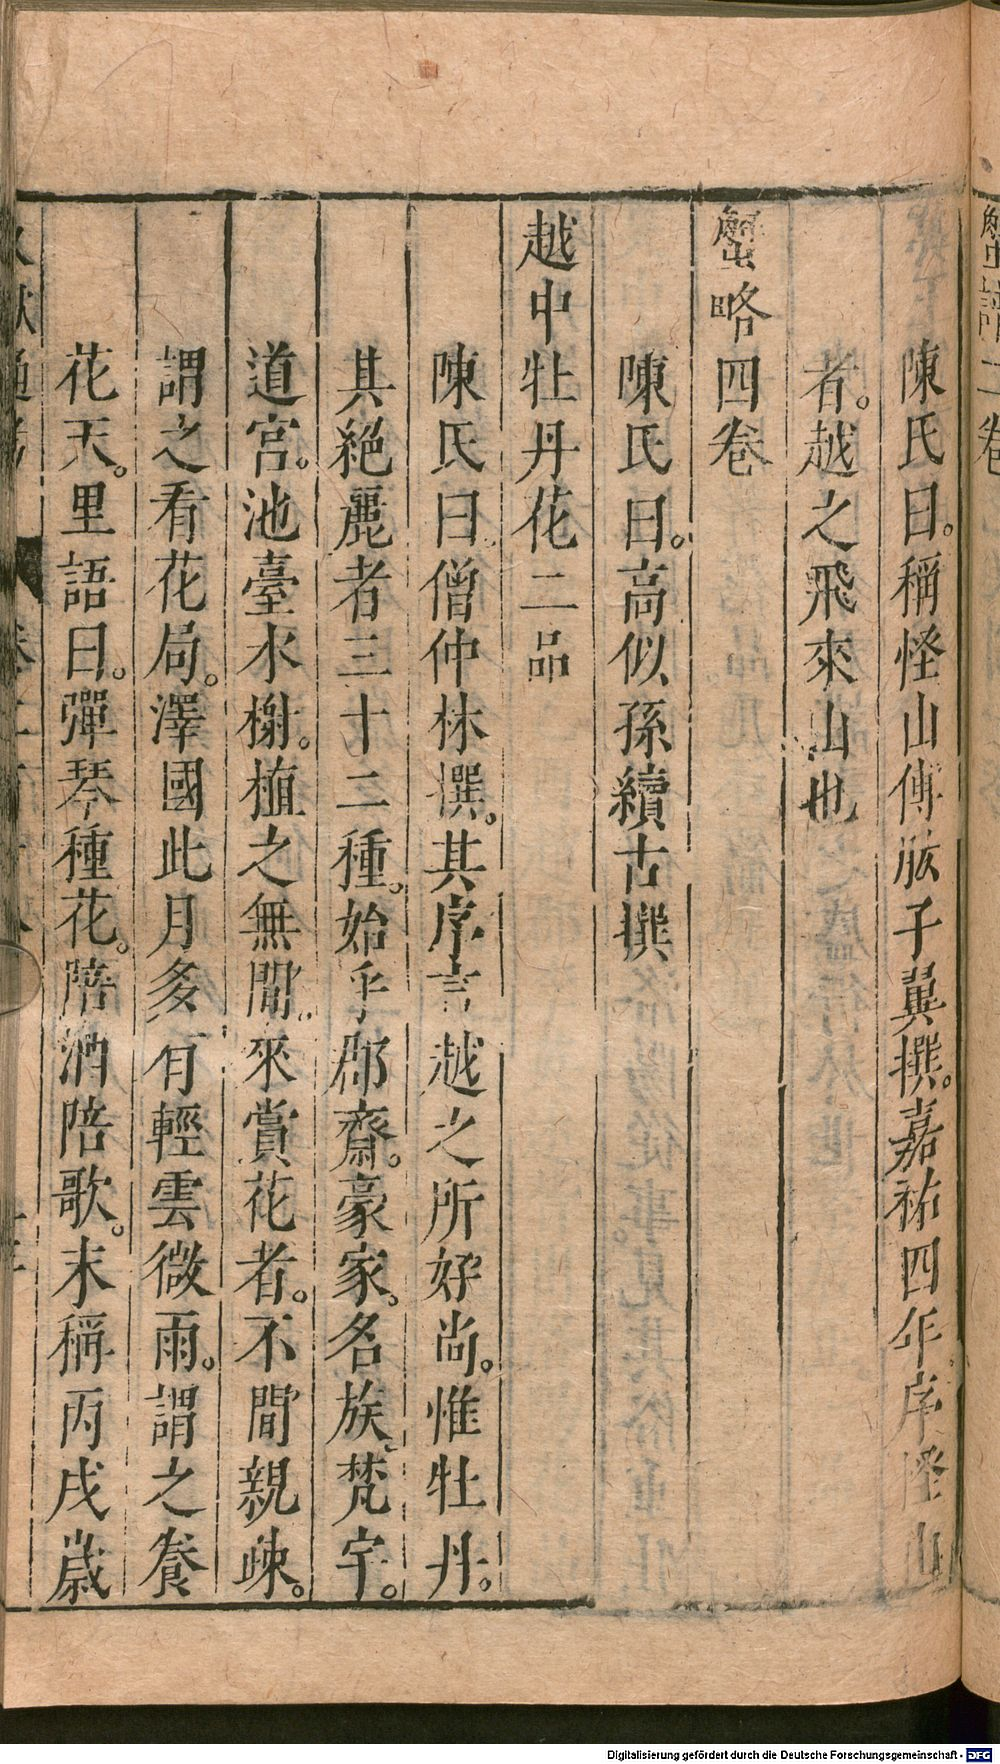 蟹譜二卷
陳氏曰。稱怪山傅肱子翼撰。嘉祐四年序怪山
者。越之飛來山也
蟹略四卷
陳氏曰。高似孫續古撰
越中牡丹花二品
陳氏曰僧仲林撰。其序言越之所好尚。惟牡丹。
其絕麗者三十二種。始乎郡齋。豪家。名族。梵宇。
道宮。池臺水榭。植之無間。來賞花者。不間親疎。
謂之看花局。澤國此月多有輕雲微雨。謂之養
花天。里語曰。彈琴種花。陪酒陪歌。末稱丙戌歲
Digitalisierung gefördert durch die Deutsche Forschungsgemeinschaft - DFG